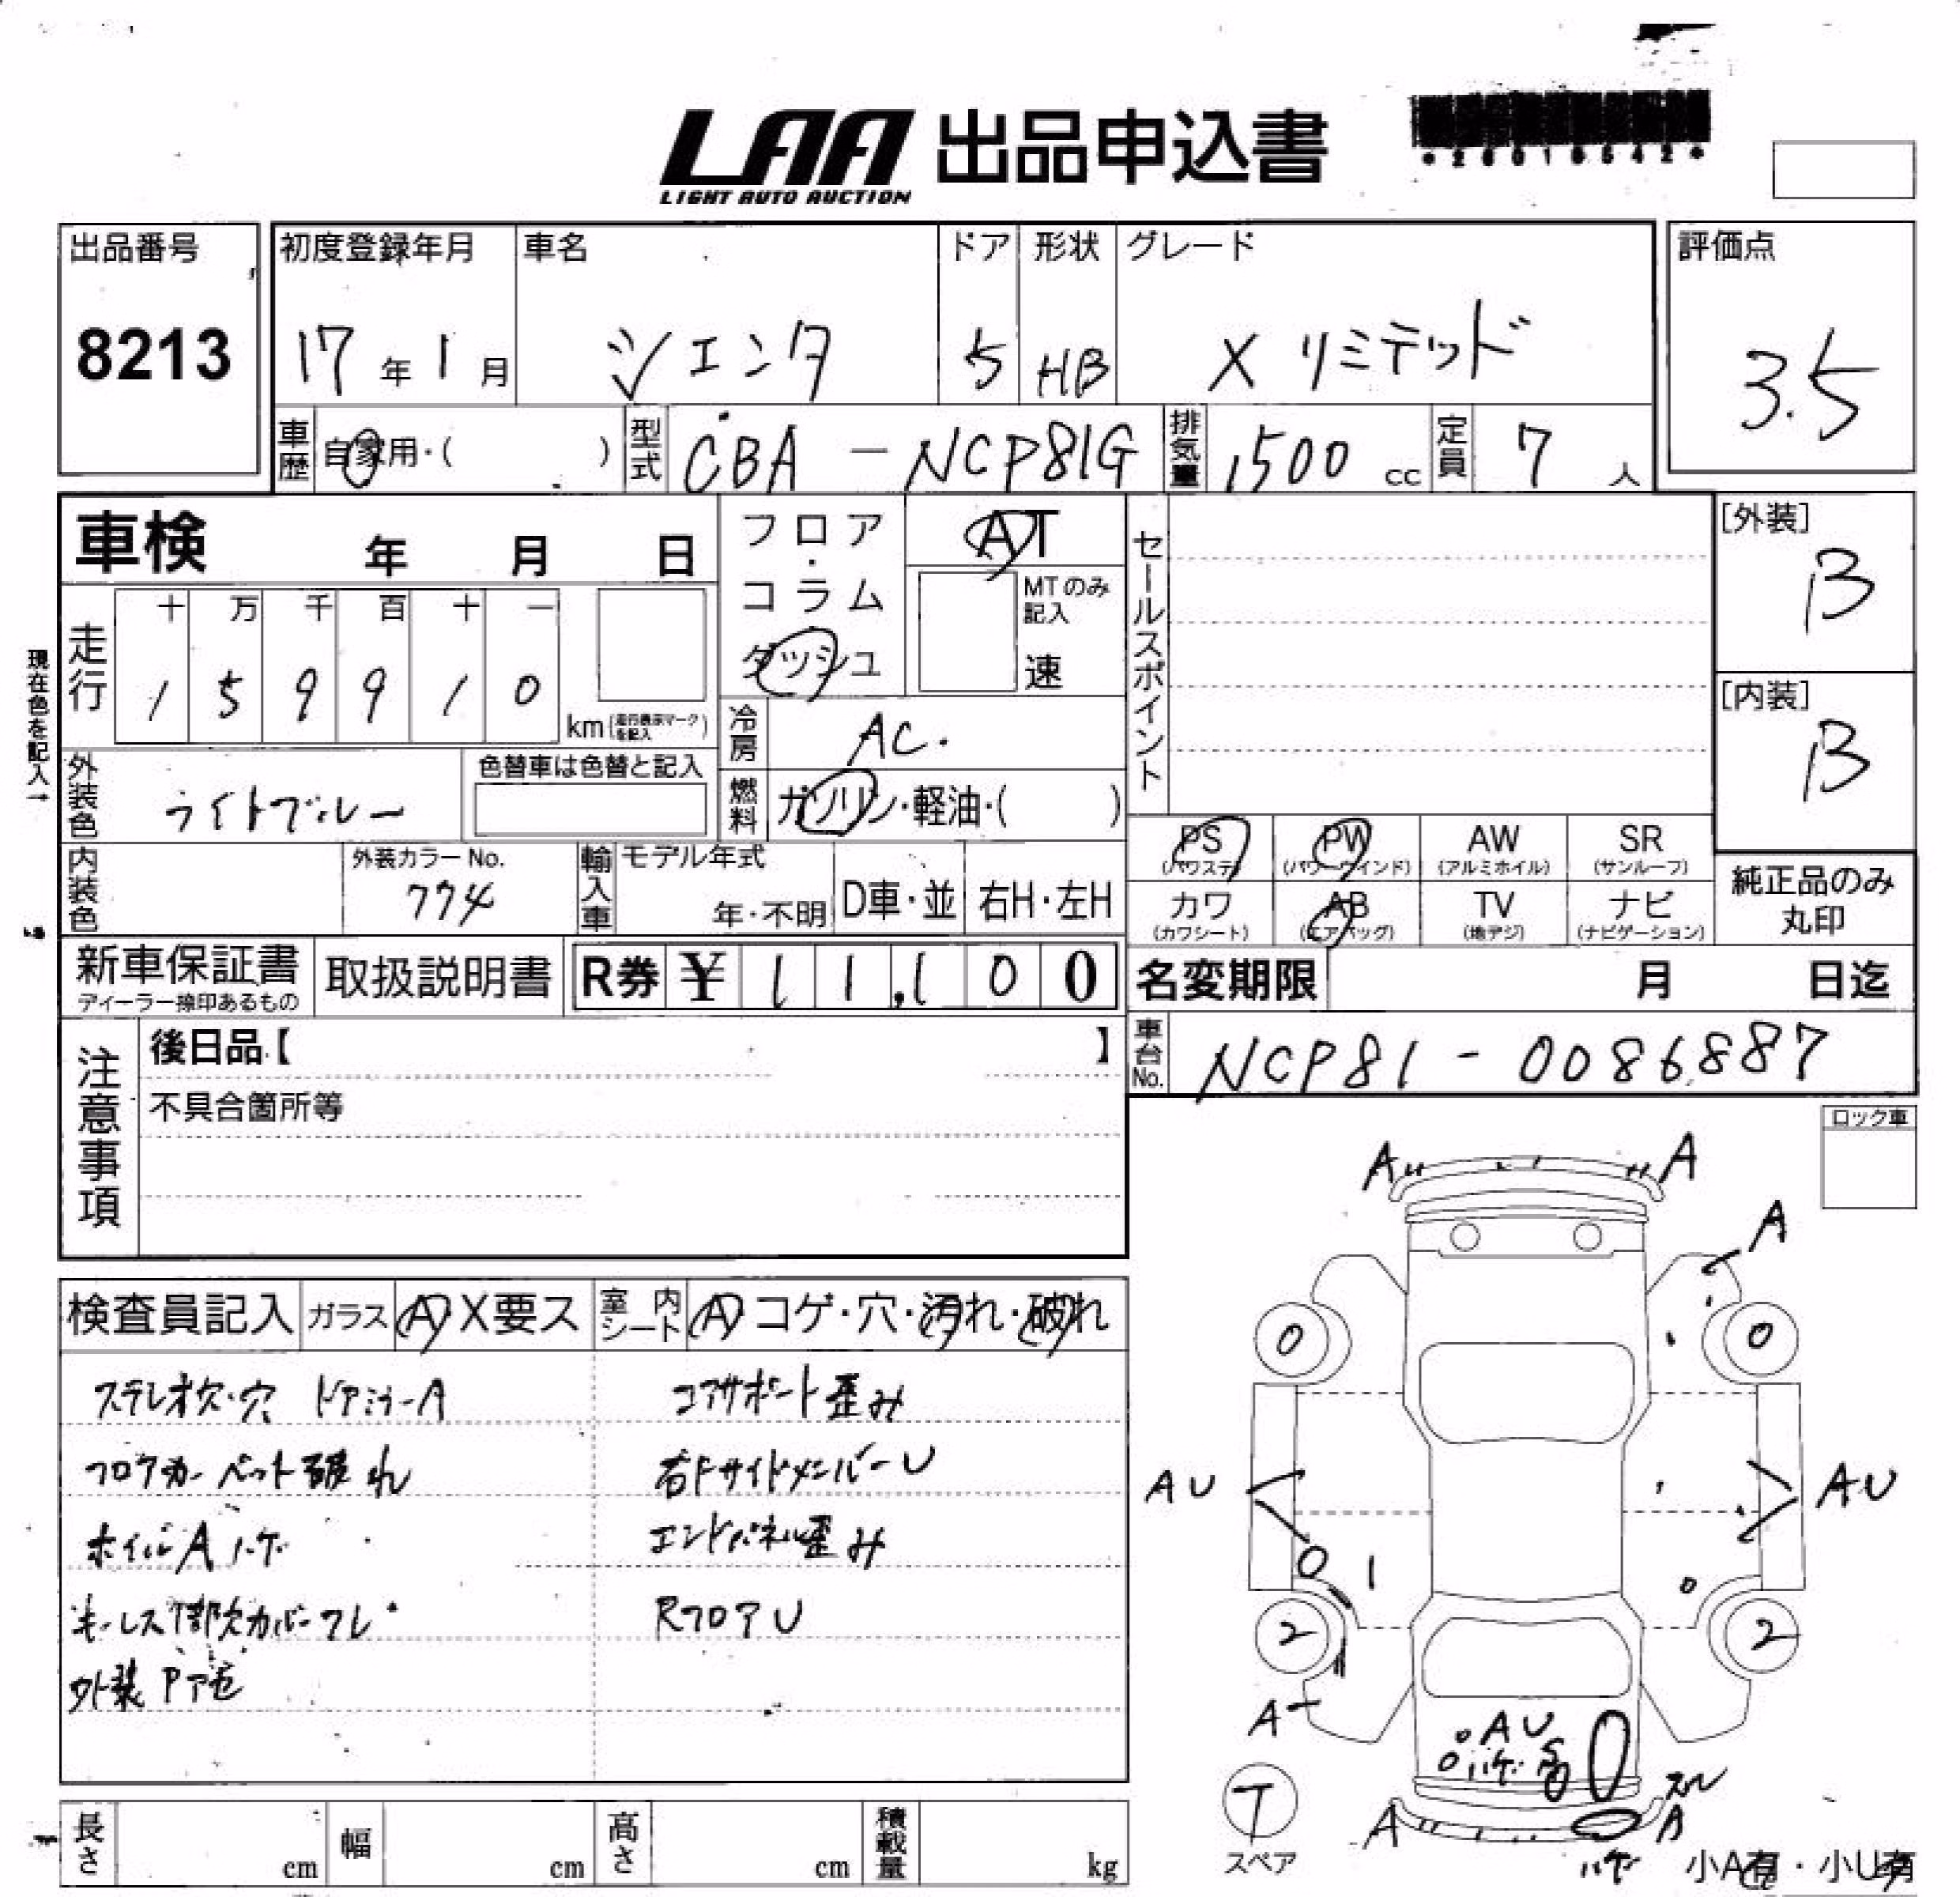 LAA 出品申込書
LIGHT AUTO AUCTION
*2601654 2*
出品番号
8213
初度登録年月
17 年 1 月
車名
シエンタ
ドア
5
形状
HB
グレード
X リミテッド
評価点
3.5
車歴
自家用・( )
型式
CBA - NCP81G
排気量
1500 cc
定員
7 人
車検 年 月 日
フロア・コラム・ダッシュ
AT
MTのみ記入
速
セールスポイント
[外装]
B
[内装]
B
現在色を記入→
走行
十 万 千 百 十 一
1 5 9 9 1 0
km(走行表示マークを記入)
冷房
AC.
外装色
ライトブルー
色替車は色替と記入
燃料
ガソリン・軽油・( )
PS (パワステ)
PW (パワーウインド)
AW (アルミホイル)
SR (サンルーフ)
カワ (カワシート)
AB (エアバッグ)
TV (地デジ)
ナビ (ナビゲーション)
純正品のみ
丸印
内装色
外装カラーNo.
774
輸入車
モデル年式
年・不明
D車・並
右H・左H
新車保証書
ディーラー捺印あるもの
取扱説明書
R券 ¥ 11,100
名変期限 月 日迄
車台No.
NCP81-0086887
注意事項
後日品【 】
不具合箇所等
ロック車
検査員記入
ガラス
A X要ス
室内シート
A コゲ・穴・汚れ・破れ
ステレオ欠・穴 ドアミラーA
コアサポート歪み
フロアカーペット破れ
右Fサイドメンバー U
ホイルAハゲ
エンドパネル歪み
キーレス1部欠カバーワレ
RフロアU
外装
A
A
A
0
0
AU
AU
2
2
A
AU
ハゲ
A
A
ハゲ
T
スペア
小A有・小U有
長さ cm
幅 cm
高さ cm
積載量 kg